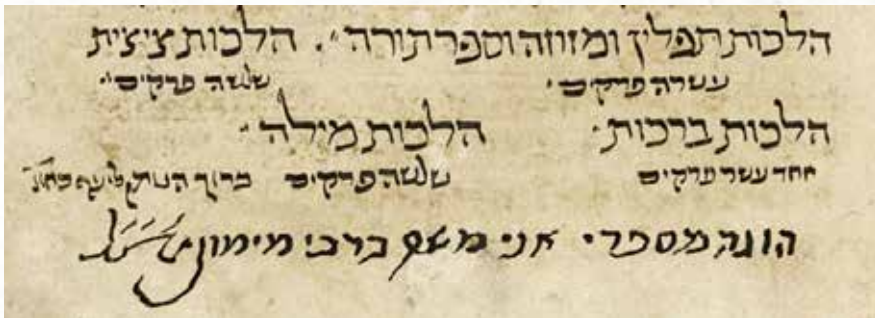 הלכות תפלין ומזוזה וספר תורה. הלכות ציצית
עשרה פרקים שלשה פרקים
הלכות ברכות. הלכות מילה
אחד עשר פרקים שלשה פרקים ברוך הנותן ליעף כח
הוגה מספרי אני משה ברבי מימון זצ״ל